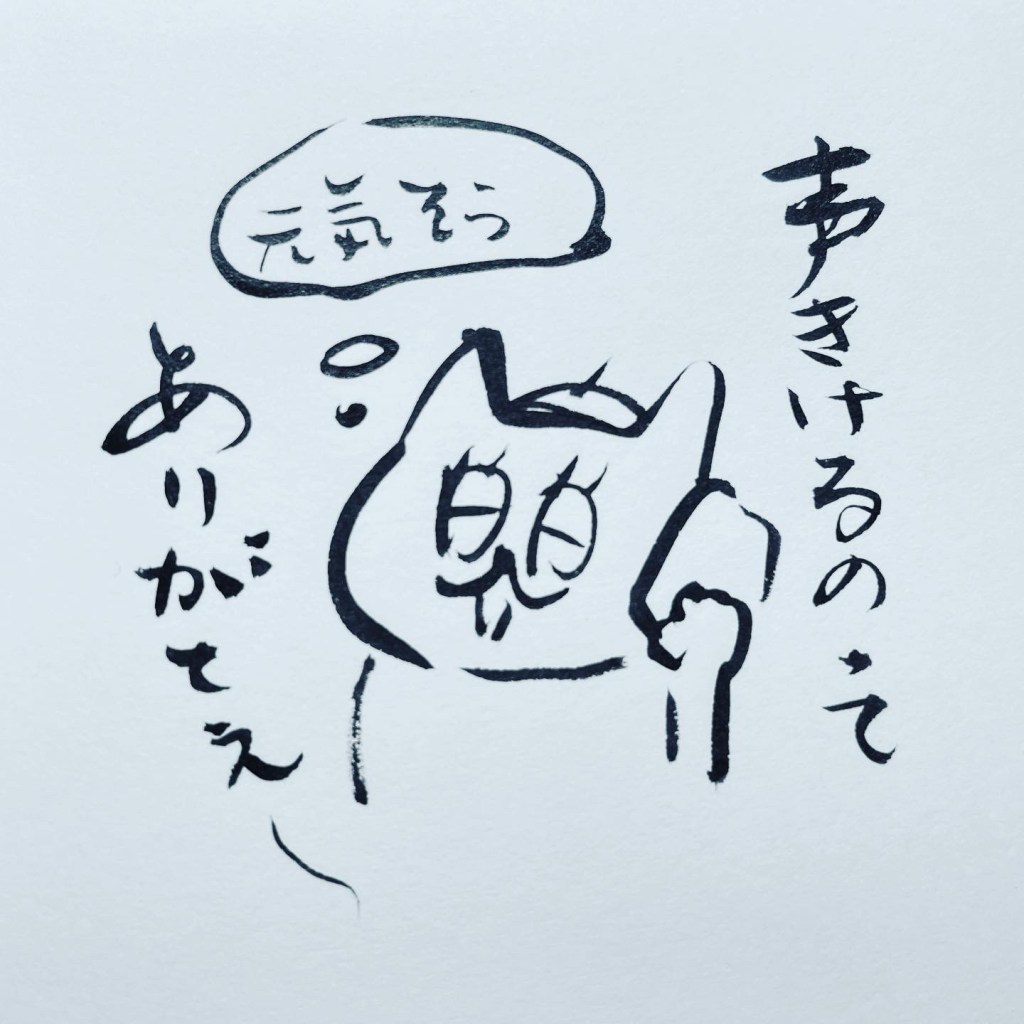 声きけるのって
元気そう
ありがてえ〜